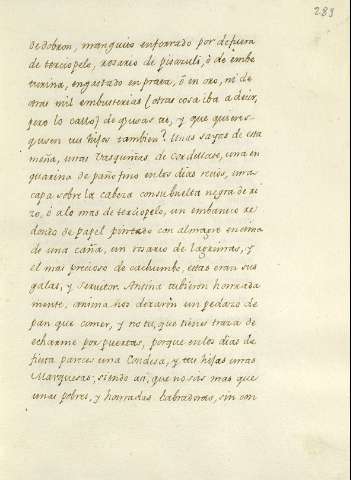 283
de dobron, manguito enforrado por defuera
de terciopelo, rosario de pisazuli, ó de embe
engastado en prata, ó en oro, ni de
otras mil embusterias [otras cosa iba a decir,
pero lo callo] de que usas tu, y que quieres
q.usen tus hijas tambien? Unas sayas de esta
meña, unas basquiñas de cordellate, una en
guarina de paño fino en los dias recios, una
capa sobre la cabeza con su buelta negra de ri
zo, ó a lo mas de terciopelo, un embanico re
dondo de papel pintado con almagre encima
de una caña, un rosario de lagrimas, y
el mas precioso de cachumbo, estas eran sus
galas, y servitor. Ansina tubieron honrada
mente, ansina nos dexaron un pedazo de
pan que comer, y no tu, que tienes traza de
echarme por puertas, porque en los dias de
fiesta pareces una Condesa, y tus hijas unas
Marquesas, siendo asi, que no sois mas que
unas pobres, y honradas labradoras, sin con